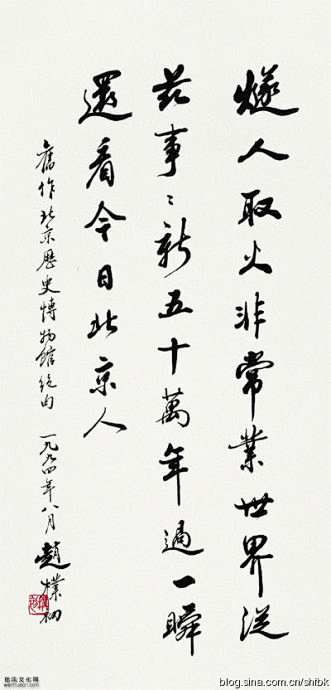 燧人取火非常業世界從
茲事〻新五十萬年過一瞬
還看今日北京人
舊作北京歷史博物館絕句 一九九四年八月 趙樸初
blog.sina.com.cn/shfbk